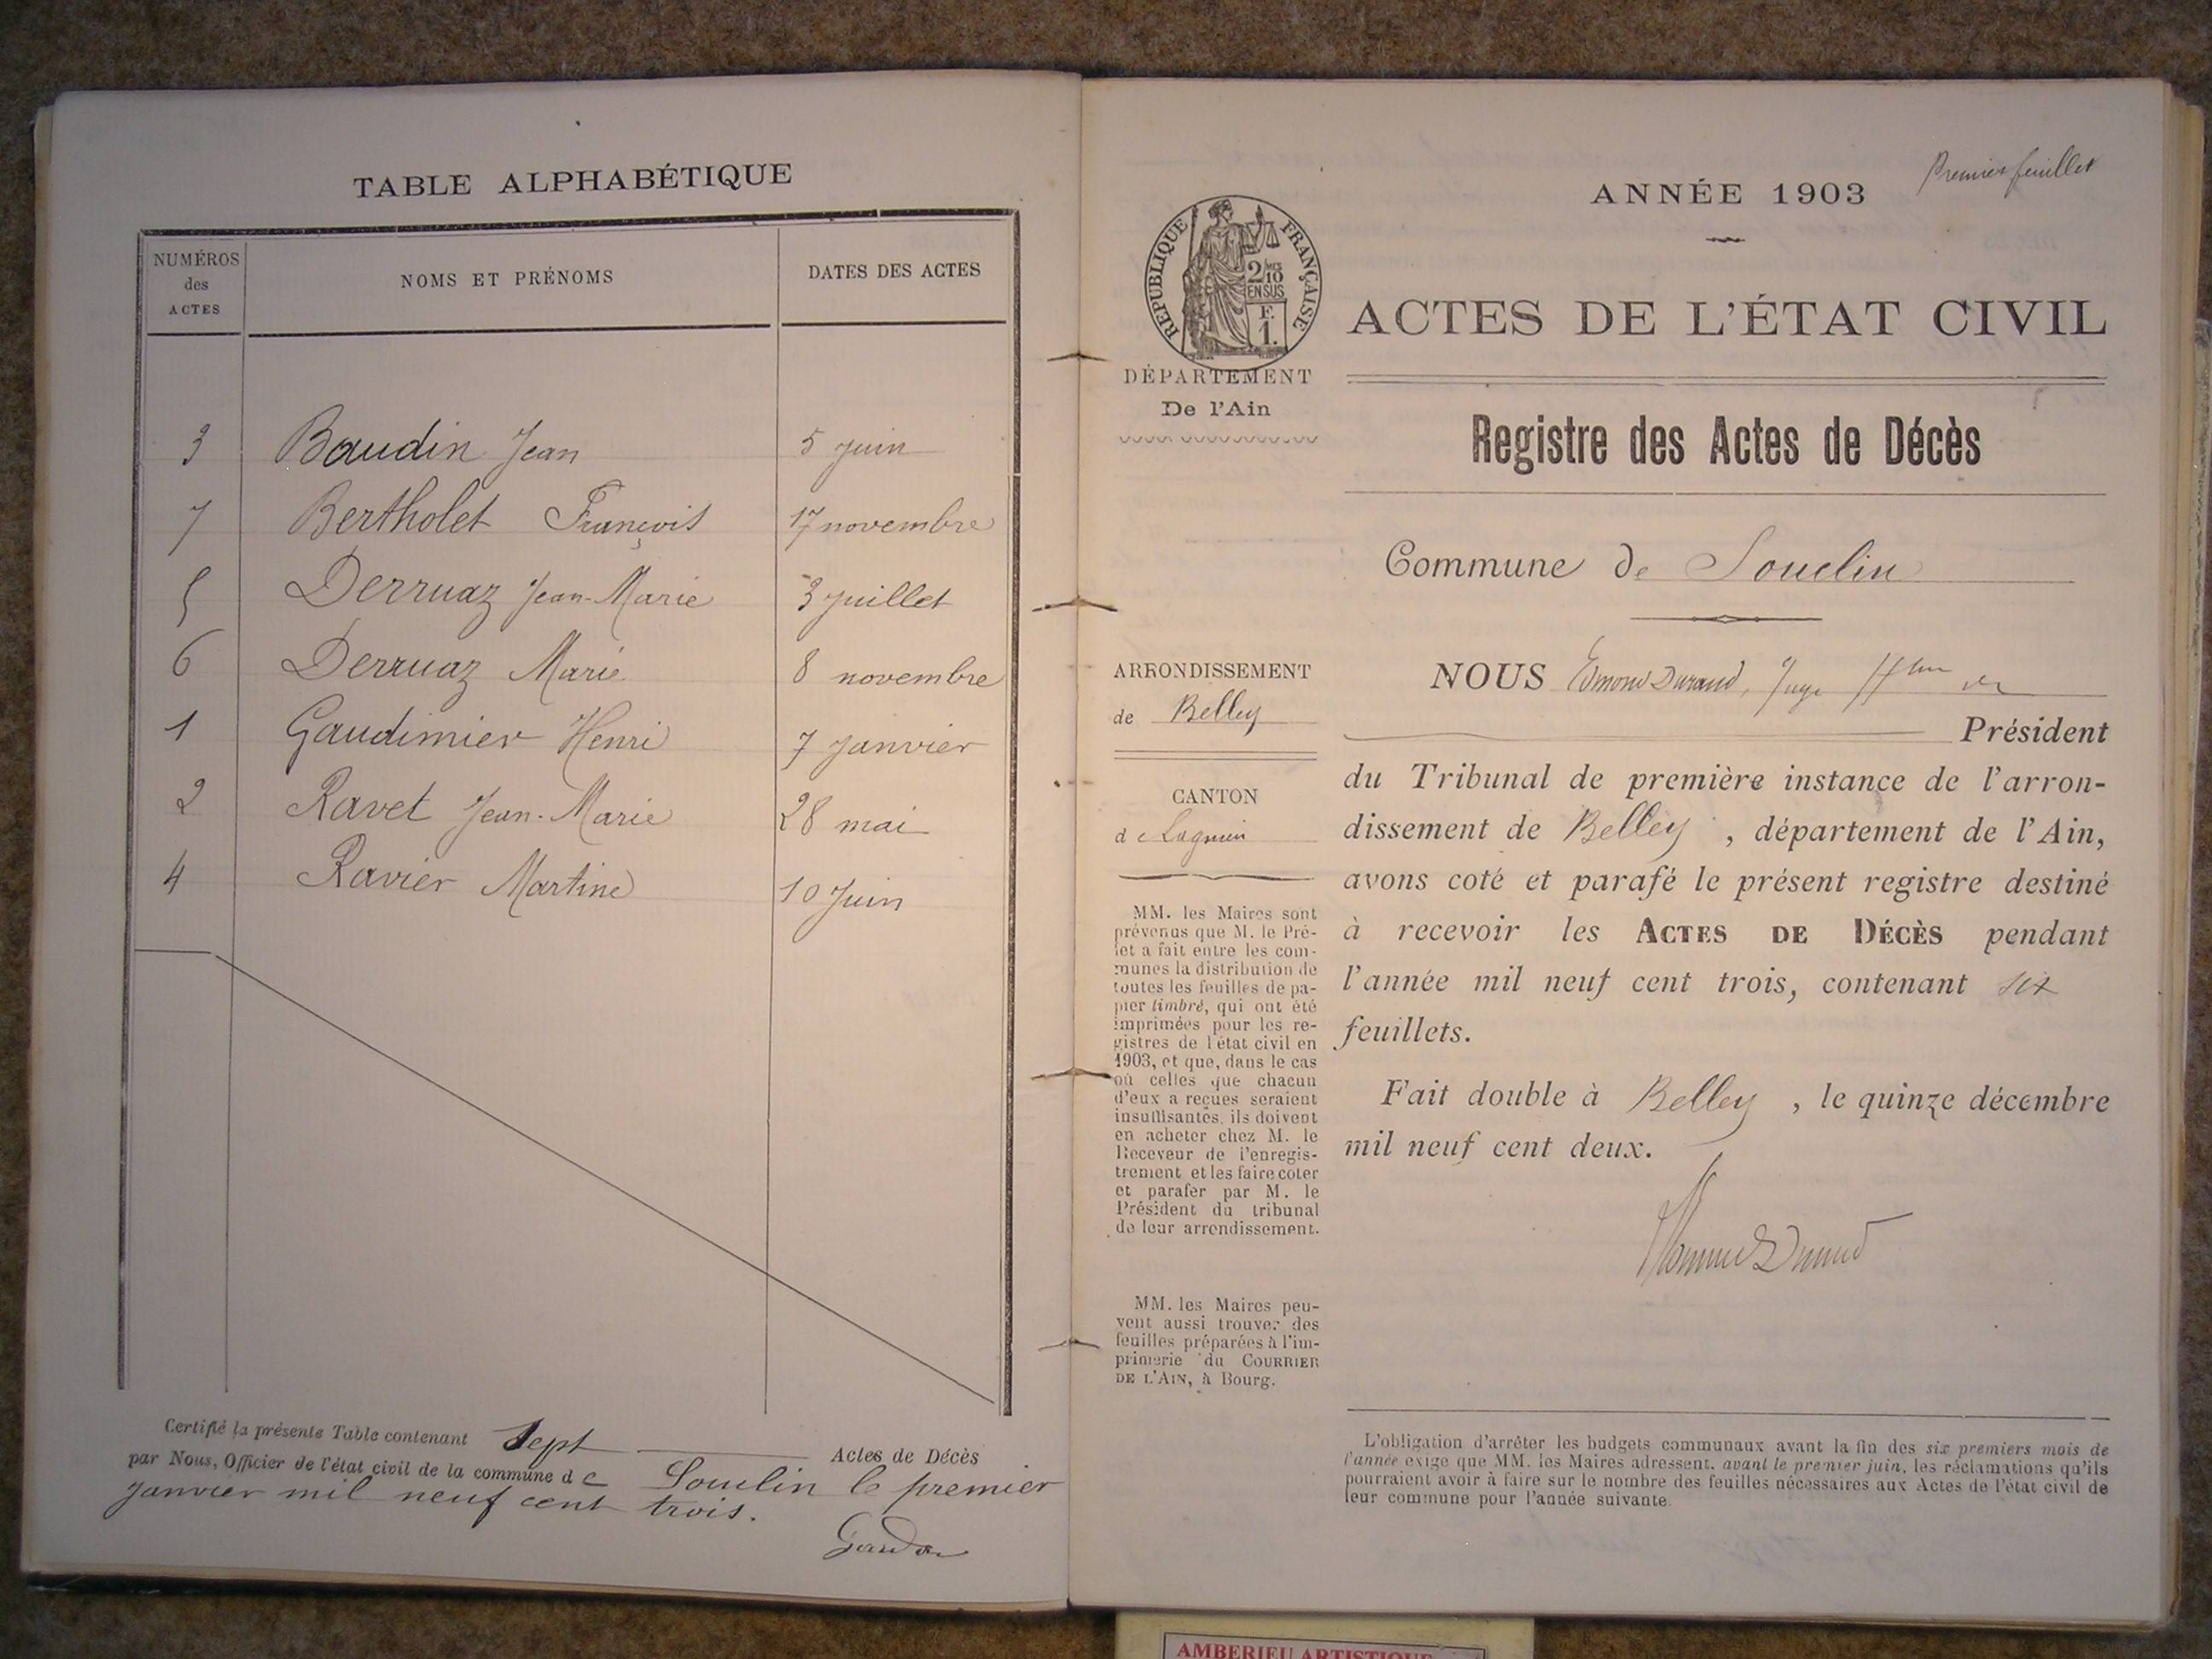 TABLE ALPHABÉTIQUE
NUMÉROS
des
ACTES
NOMS ET PRÉNOMS
DATES DES ACTES
3 Baudin Jean 5 juin
7 Bertholet François 17 novembre
5 Derruaz Jean-Marie 3 juillet
6 Derruaz Marie 8 novembre
1 Gaudimier Henri 7 Janvier
2 Ravet Jean-Marie 28 mai
4 Ravier Martine 10 Juin
Certifié la présente Table contenant Sept Actes de Décès
par Nous, Officier de l'état civil de la commune de Souclin le premier
janvier mil neuf cent trois.
Premier feuillet
ANNÉE 1903
RÉPUBLIQUE FRANÇAISE
2/10 MES
EN SUS
F.
1.
ACTES DE L'ÉTAT CIVIL
DÉPARTEMENT
De l'Ain
Registre des Actes de Décès
Commune de Souclin
ARRONDISSEMENT
de Belley
CANTON
de Lagnieu
MM. les Maires sont
prévenus que M. le Pré-
fet a fait entre les com-
munes la distribution de
toutes les feuilles de pa-
pier timbré, qui ont été
imprimées pour les re-
gistres de l'état civil en
1903, et que, dans le cas
où celles que chacun
d'eux a reçues seraient
insuffisantes, ils doivent
en acheter chez M. le
Receveur de l'enregis-
trement et les faire coter
et parafer par M. le
Président du tribunal
de leur arrondissement.
MM. les Maires peu-
vent aussi trouver des
feuilles préparées à l'im-
primerie du COURRIER
DE L'AIN, à Bourg.
NOUS Edmond Durand, Juge
Président
du Tribunal de première instance de l'arron-
dissement de Belley, département de l'Ain,
avons coté et parafé le présent registre destiné
à recevoir les ACTES DE DÉCÈS pendant
l'année mil neuf cent trois, contenant six
feuillets.
Fait double à Belley, le quinze décembre
mil neuf cent deux.
L'obligation d'arrêter les budgets communaux avant la fin des six premiers mois de
l'année exige que MM. les Maires adressent, avant le premier juin, les réclamations qu'ils
pourraient avoir à faire sur le nombre des feuilles nécessaires aux Actes de l'état civil de
leur commune pour l'année suivante.
AMBERIEU ARTISTIQUE